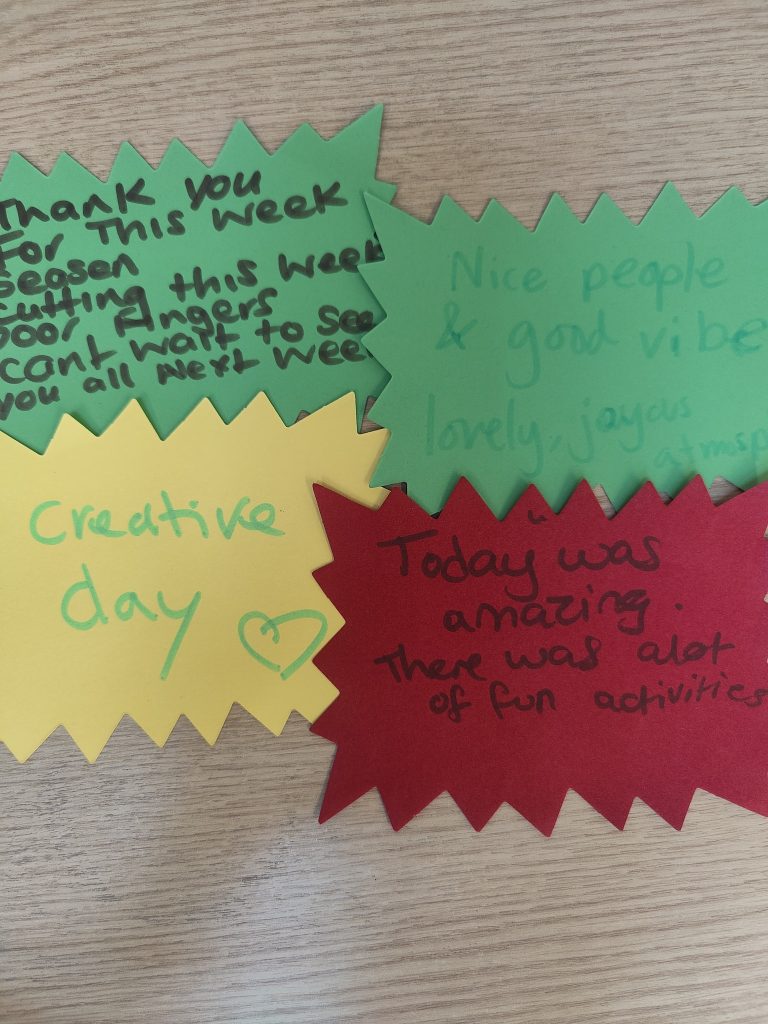 Thank you
For This week
seasen
cutting this week
poor Fingers
cant wait to see
you all Next Week
Nice people
& good vibe
lovely, joyous
atmosp
creative
day
Today was
amazing.
There was alot
of fun activities